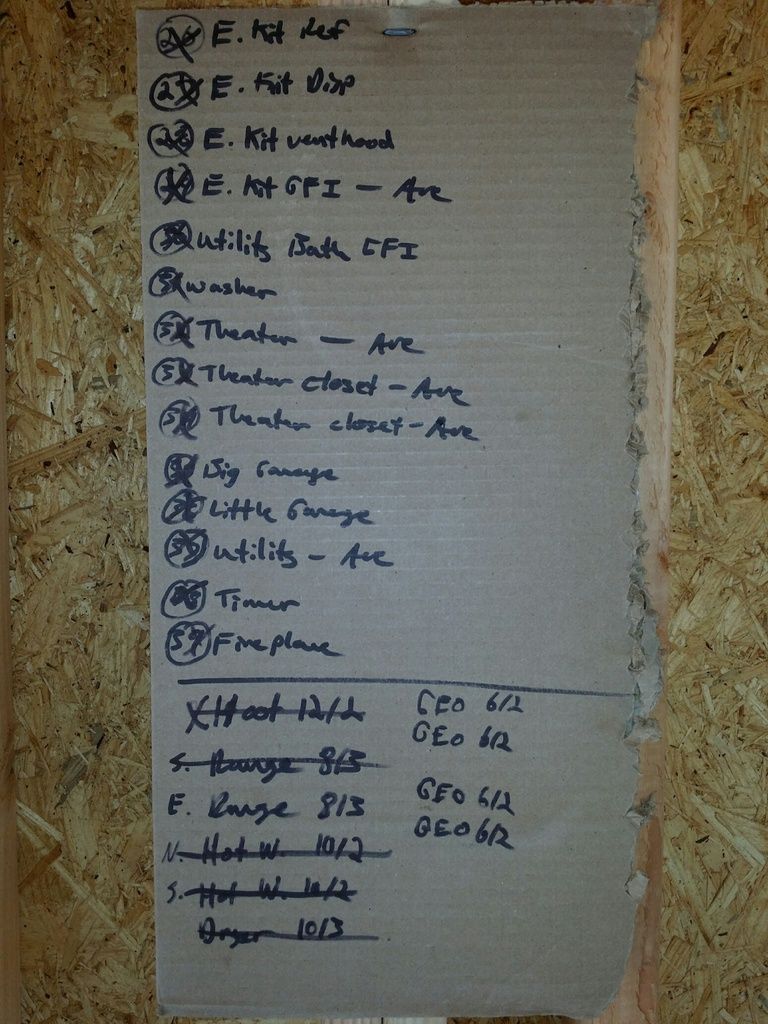 E. Kit Ref
E. Kit Disp
E. Kit venthood
E. Kit GFI - Arc
Utility Bath GFI
Washer
Theater - Arc
Theater closet - Arc
Theater closet - Arc
Big Garage
Little Garage
Utility - Arc
Timer
57 Fireplace
12/2 GEO 6/2
GEO 6/2
S. Range 8/3
E. Range 8/3 GEO 6/2
GEO 6/2
N. Hot W. 10/2
S. Hot W. 10/2
Dryer 10/3